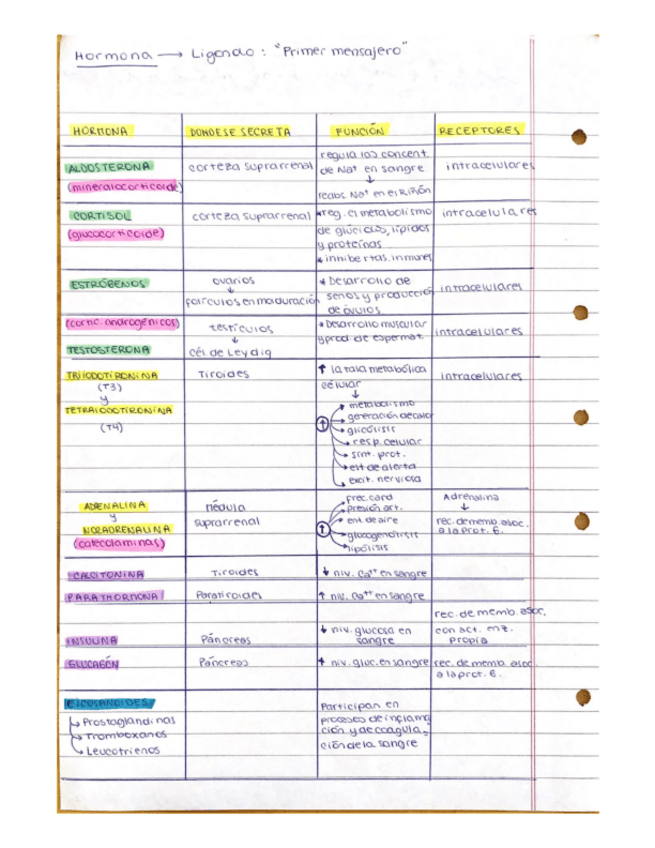 Hormona → Ligando : "Primer mensajero"
HORMONA DONDE SE SECRETA FUNCIÓN RECEPTORES
ALDOSTERONA
(mineralocorticoide)
corteza suprarrenal
regula las concent.
de Na+ en sangre
↓
reabs. Na+ en el Riñón
intracelulares
CORTISOL
(glucocorticoide)
corteza suprarrenal
*reg. el metabolismo
de glúcidos, lípidos
y proteínas
* inhibe rtas. inmunes
intracelulares
ESTRÓGENOS
ovarios
↓
folículos en maduración
* Desarrollo de
senos y producción
de óvulos
intracelulares
(cortic. androgénicos)
TESTOSTERONA
testículos
↓
cél. de Leydig
* Desarrollo muscular
y prod. de espermat.
intracelulares
TRIIODOTIRONINA
(T3)
y
TETRAIODOTIRONINA
(T4)
Tiroides
↑ la tasa metabólica
célular
↓
↑
metabolismo
generación de calor
glicólisis
resp. celular
sint. prot.
est de alerta
excit. nerviosa
intracelulares
ADRENALINA
y
NORADRENALINA
(catecolaminas)
médula
suprarrenal
↑
frec. card
presión art.
ent. de aire
glucogenólisis
lipólisis
Adrenalina
↓
rec. de memb. asoc.
a la prot. G.
CALCITONINA
Tiroides
↓ niv. Ca++ en sangre
PARATHORMONA
Paratiroides
↑ niv. Ca++ en sangre
INSULINA
Páncreas
↓ niv. glucosa en
sangre
rec. de memb. asoc.
con act. enz.
propia
GLUCAGÓN
Páncreas
↑ niv. gluc. en sangre
rec. de memb. asoc
a la prot. G.
EICOSANOIDES
Prostaglandinas
Tromboxanos
Leucotrienos
Participan en
procesos de inflama
ción y de coagula_
ción de la sangre